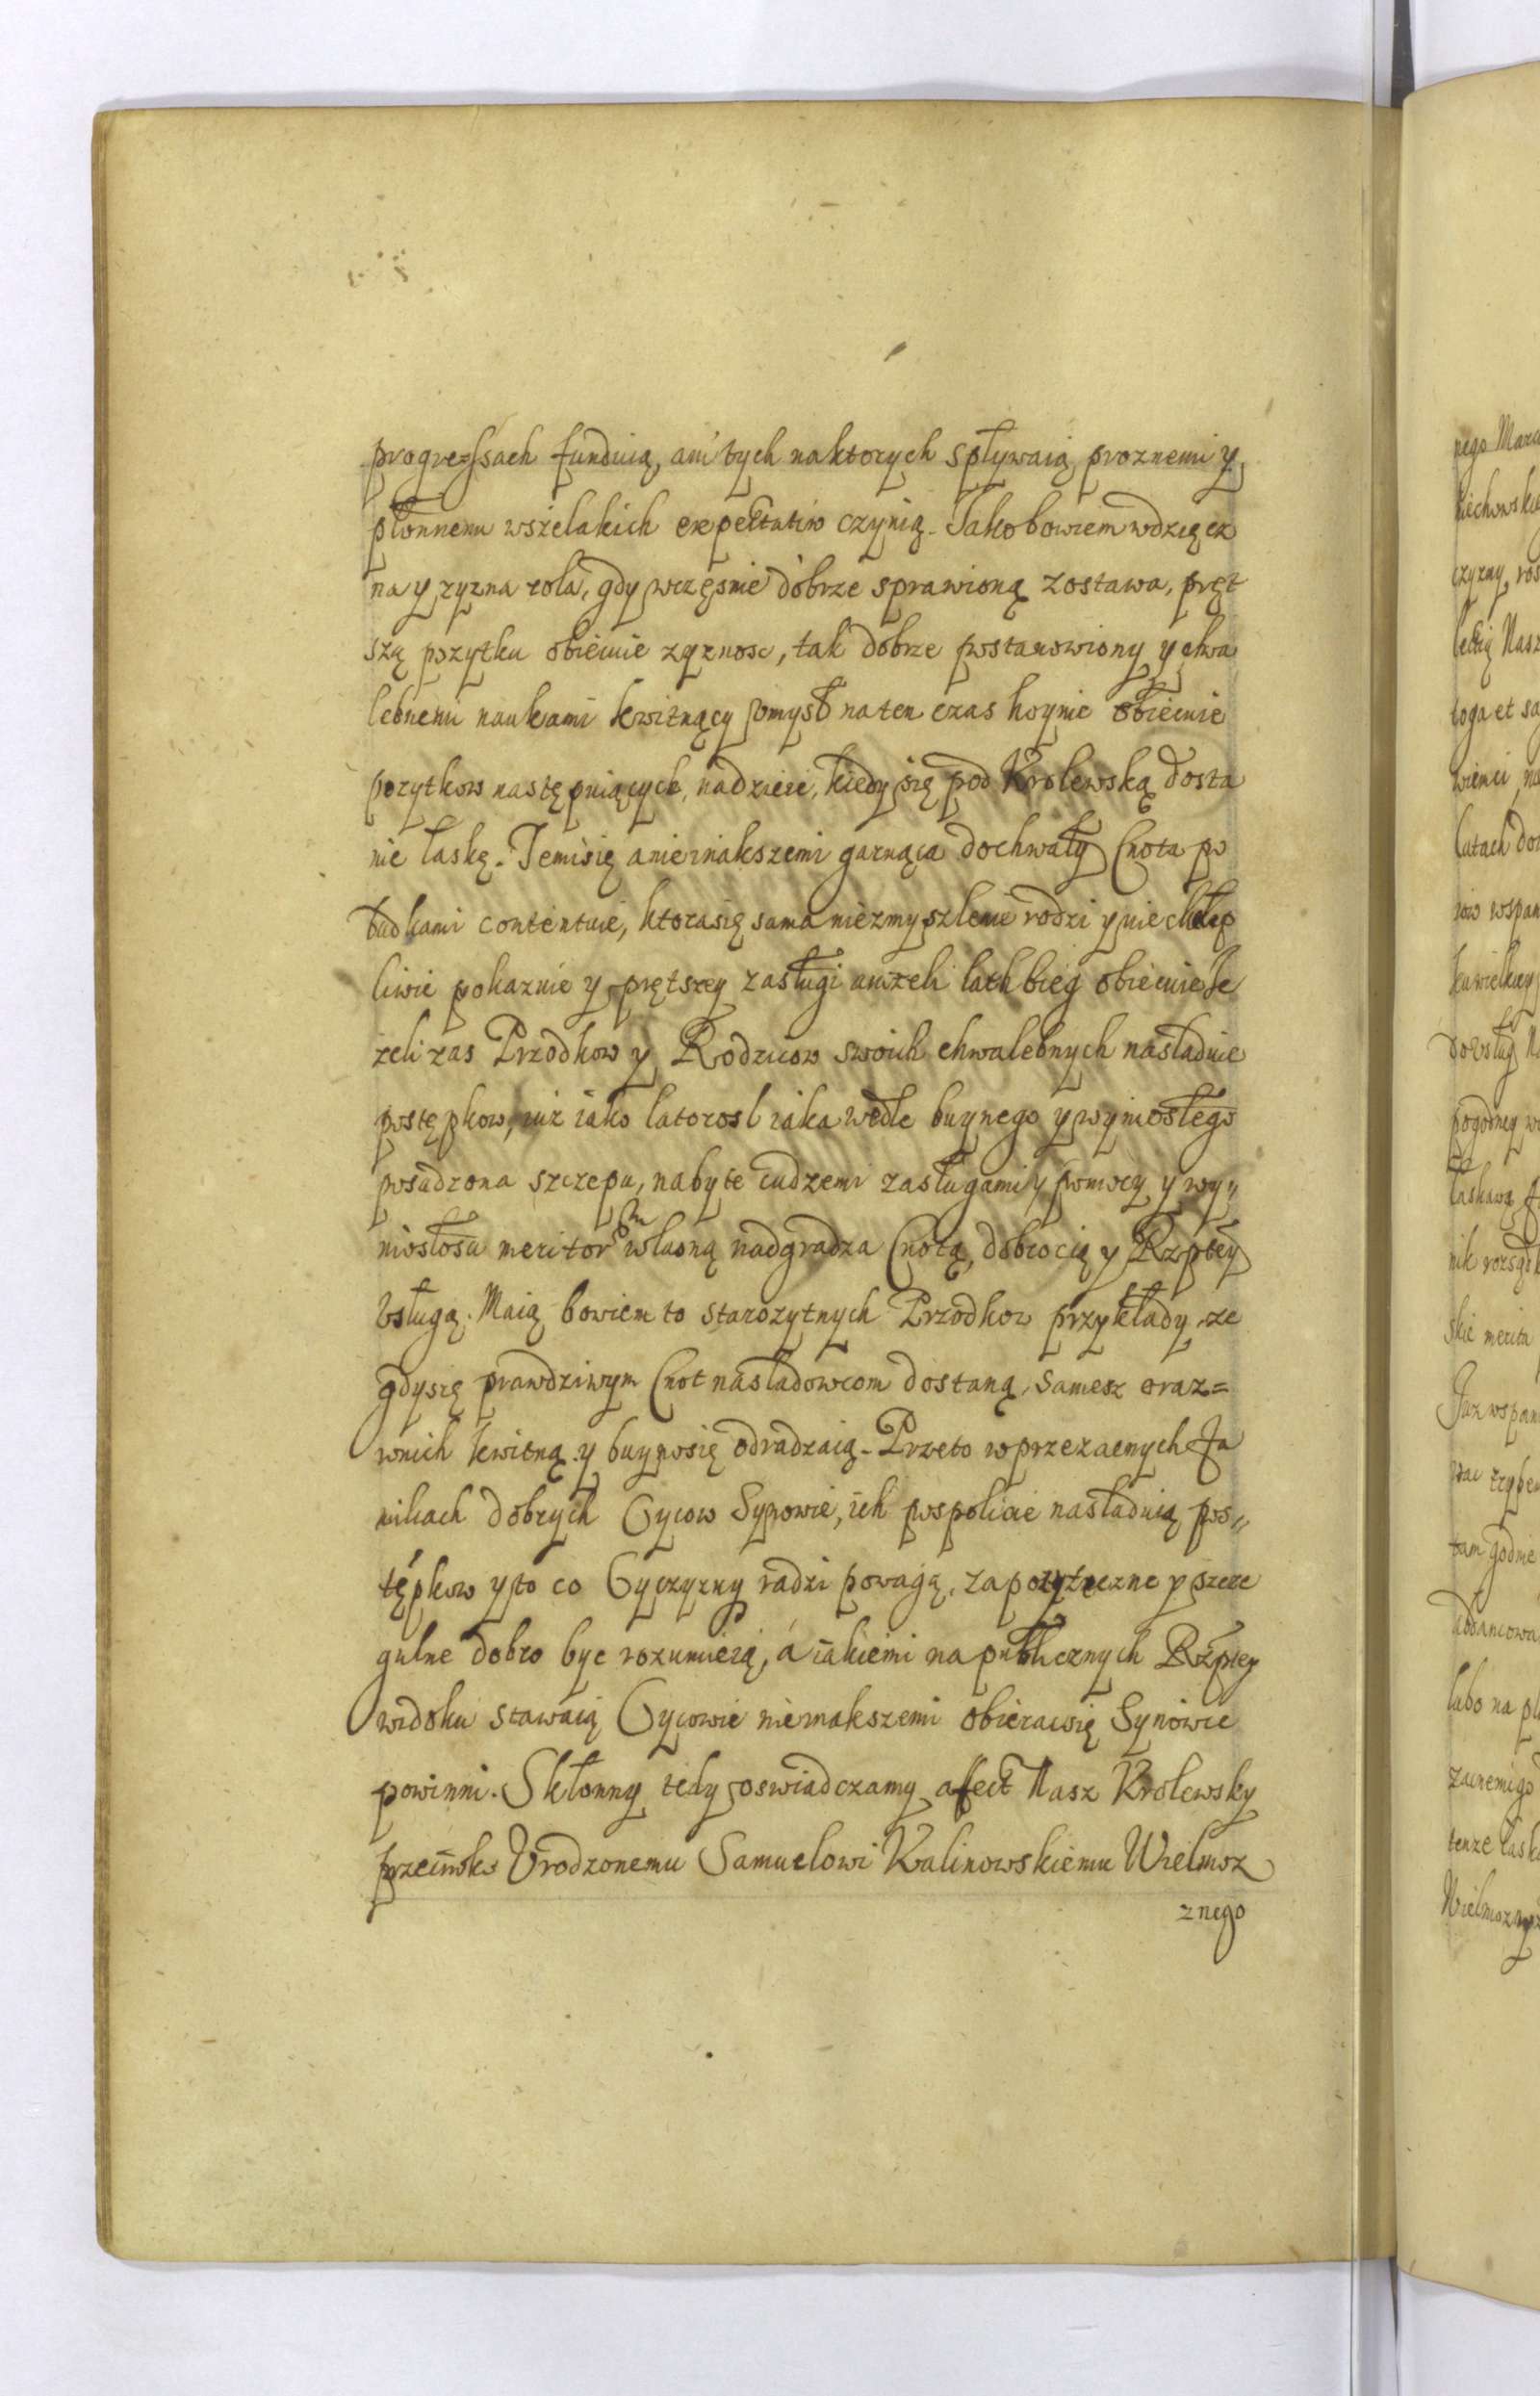 progressach funduią, ani tych naktorych spływaią, proznemi y
płonnemi wszelakich expectatiw czynią. Jako bowiem wdzięcz
na y zyzna rola, gdy wczęsnie dobrze sprawioną zostawa, pręt
szą pozytku obiecuie zyznosc, tak dobrze postanowiony y chwa
lebnemi naukami kwitnący pomysł naten czas hoynie obiecuie
pozytkow następuiących, nadzieie, kiedy się pod Krolewską dosta
nie laskę. Temisię anieinakszemi garnąca dochwały Cnota po
budkami contentuie, ktorasię sama niezmyszlenie rodzi y niechełp
liwie pokazuie y prętszey zasługi nizeli lath bieg obiecuie Je
zeli zas Przodkow y Rodzicow swoich chwalebnych nasladuie
postępkow, iuz iako latorosl iaka wedle buynego y wyniosłego
posadzona szczepu, nabyte cudzemi zasługami y pomocy y wy„
niosłosci meritor własną nadgradza Cnotą, dobrocią y Rzptey
Vsługą. Maią bowiem to starozytnych Przodkow przykłady, ze
gdysię prawdziwym Cnot nasladowcom dostaną, samesz oraz=
wnich kwitną y buynosię odradzaią. Przeto wprzezacnych Fa
miliach dobrych Oycow Synowie, ich pospolicie nasladuią pos„
tępkow y to co Oyczyzny radzi powagą, za pozyteczne y szcze
gulne dobro byc rozumieią, á iakiemi na publicznych Rzptey
widoku stawaią Oycowie nieinakszemi obieracsię Synowie
powinni. Skłonny tedy oswiadczamy affect Nasz Krolewsky
przeciwko Vrodzonemu Samuelowi Kalinowskiemu Wielmoz
znego
nego
czyzny
Nasz
toga et
latach
wspan
pogodney
nik
skie merita
Juz
tam godnie
lubo na
zacnemi
tenze